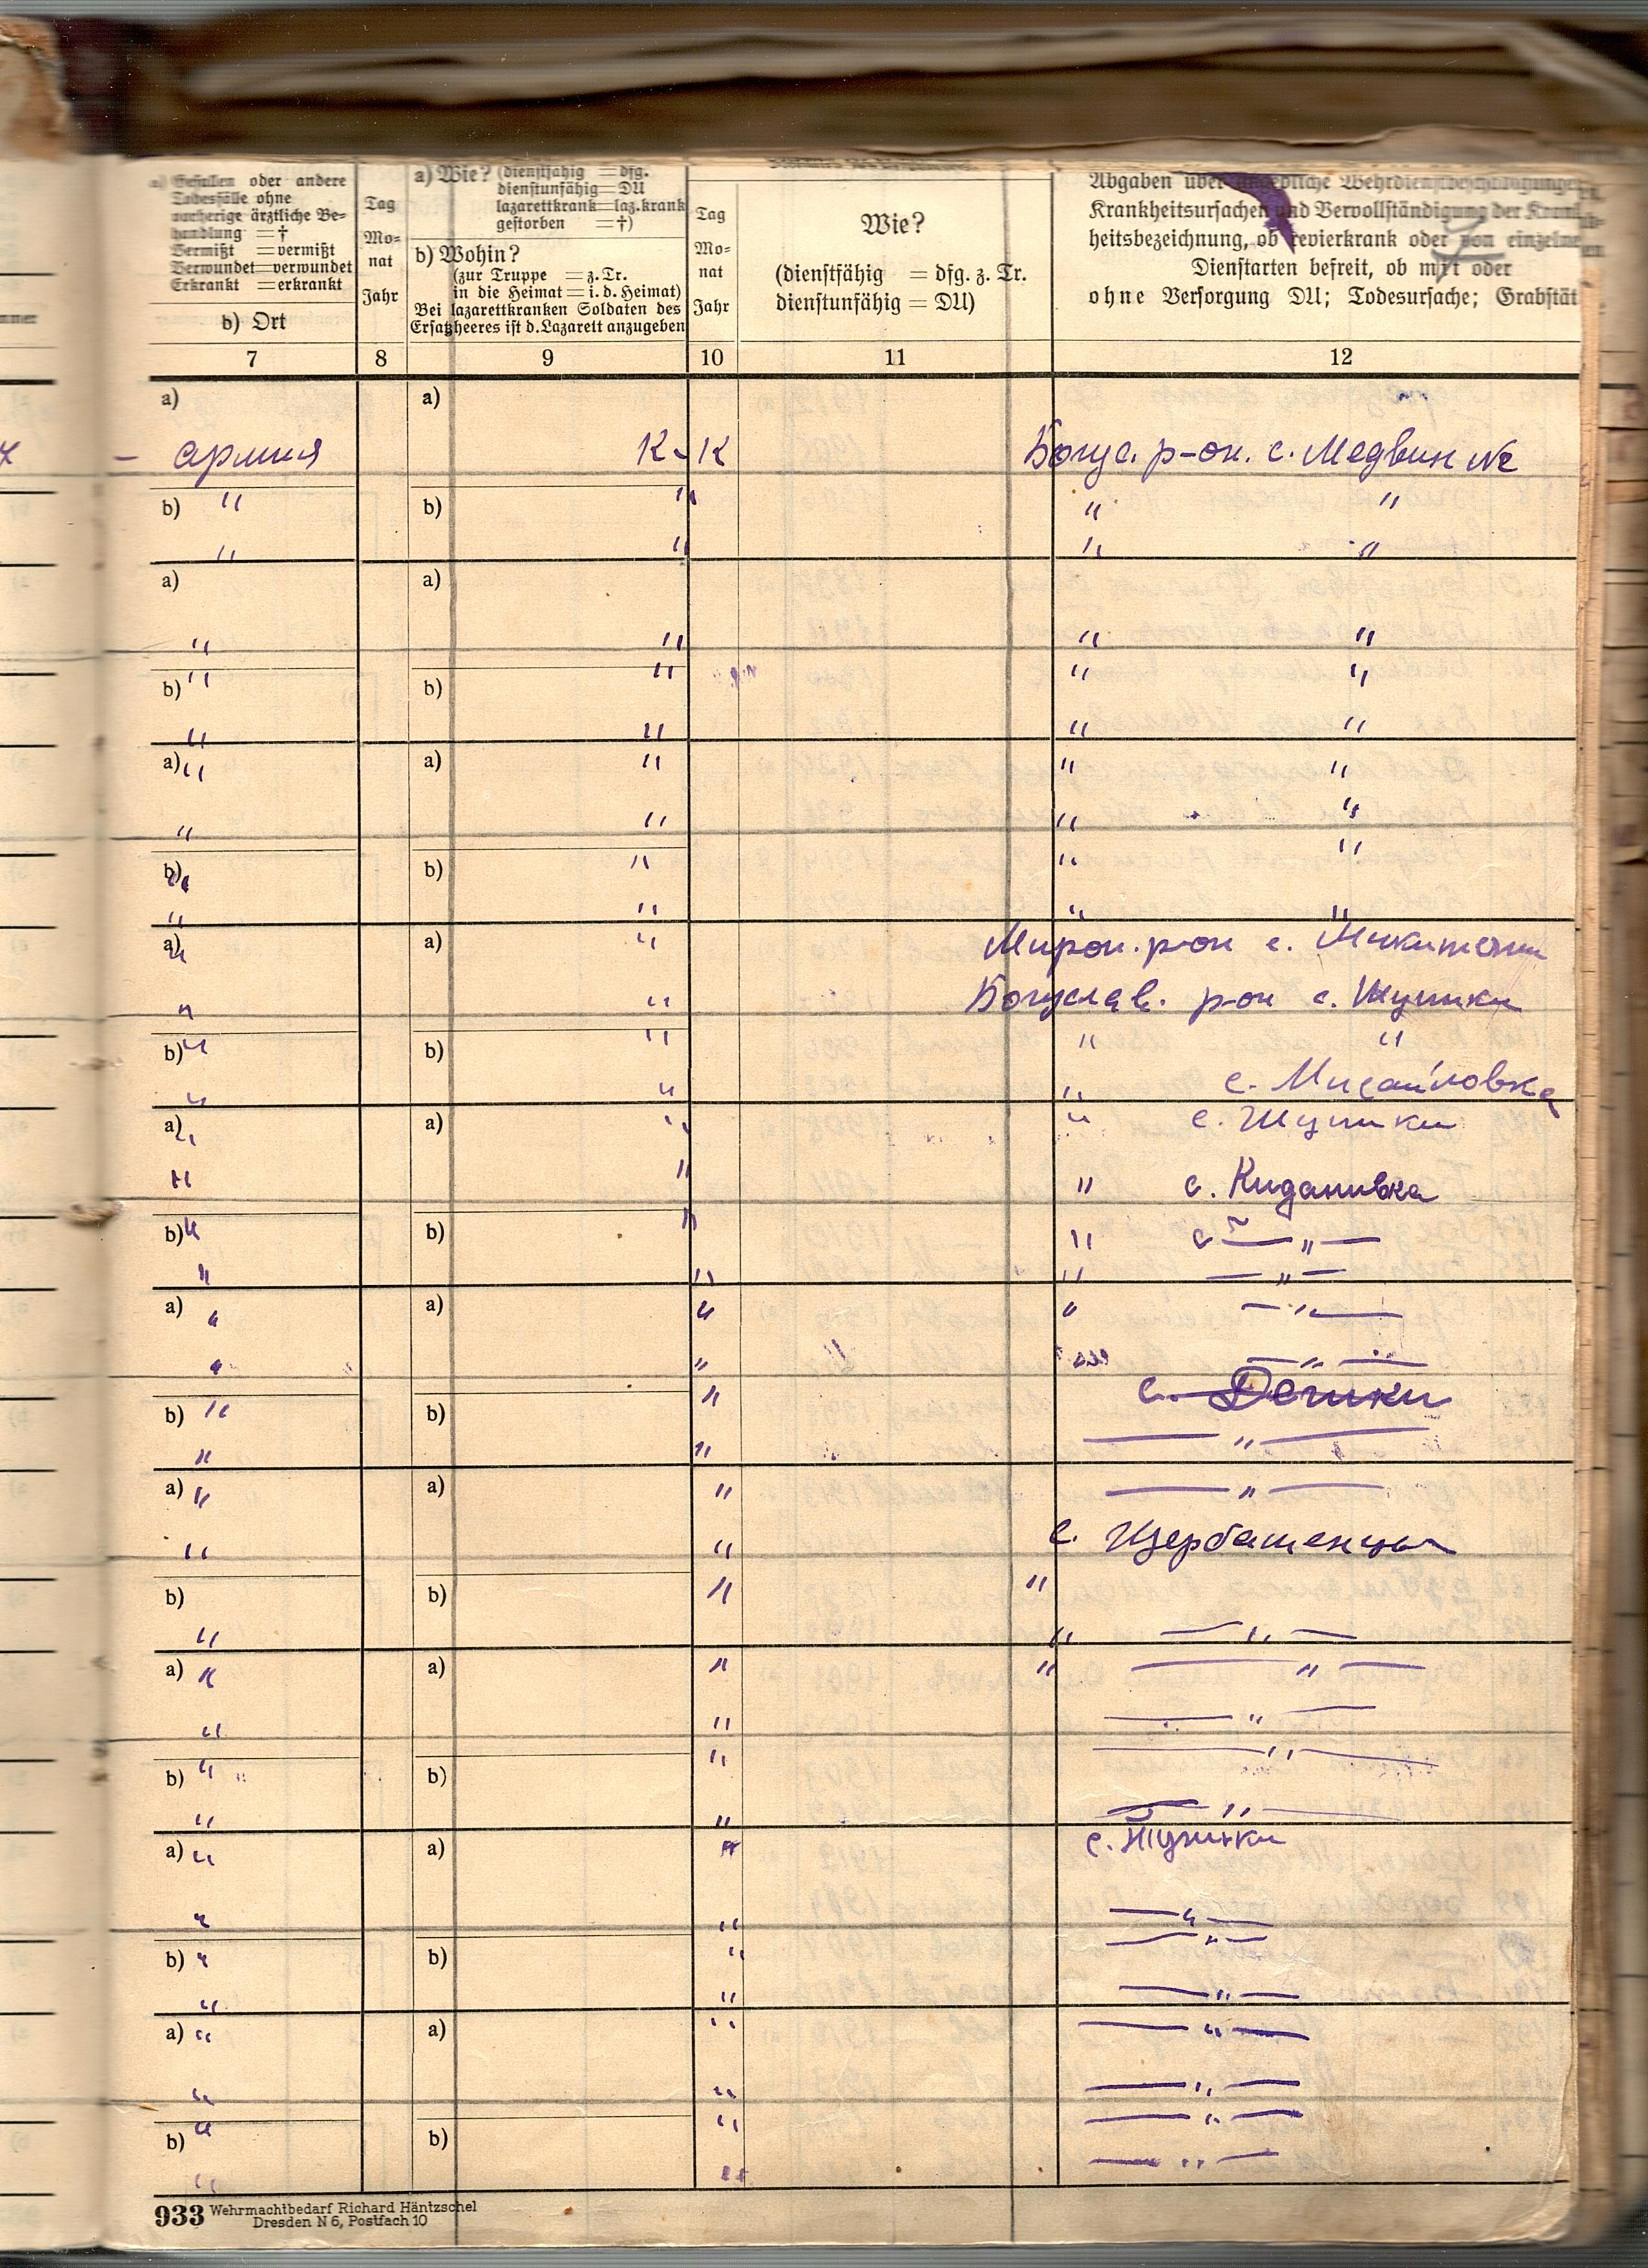 a) Gefallen oder andere
Todesfälle ohne
vorherige ärztliche Be-
handlung = †
Vermißt = vermißt
Verwundet = verwundet
Erkrankt = erkrankt
b) Ort
Tag
Mo-
nat
Jahr
a) Wie? (dienstfähig = dfg.
dienstunfähig = DU
lazarettkrank = laz.krank
gestorben = †)
b) Wohin?
(zur Truppe = z. Tr.
in die Heimat = i. d. Heimat)
Bei lazarettkranken Soldaten des
Ersatzheeres ist d. Lazarett anzugeben
Tag
Mo-
nat
Jahr
Wie?
(dienstfähig = dfg. z. Tr.
dienstunfähig = DU)
Abgaben über angebliche Wehrdienstbeschädigungen
Krankheitsursachen und Vervollständigung der Krank
heitsbezeichnung, ob revierkrank oder von einzelne
Dienstarten befreit, ob mit oder
ohne Versorgung DU; Todesursache; Grabstät
7 8 9 10 11 12
a) a)
– армия К-К Богус. р-он. с. Медвин №2
b) " b) " " "
" " " "
a) a)
" " " "
b) " b) " " "
" " " "
a) " a) " " "
" " " "
b) " b) " " "
" " " "
a) " a) " Мирон. р-он с.
" " Богуслав. р-он с. Шупики
b) " b) " " "
" " " с. Мисайловка
a) " a) " " с. Шупики
" " " с. Киданивка
b) " b) " " с — " —
" " " — " —
a) " a) " " — " —
" " — " —
с. Дешки
b) " b) "
" " — " —
a) " a) " — " —
" " с. Щербашенцы
b) b) " "
" " — " —
a) " a) " " — " —
" " — " —
b) " b) " — " —
" " — " —
a) " a) " с. Шупики
" " — " —
b) " b) " — " —
" " — " —
a) " a) " — " —
" " — " —
b) " b) " — " —
" " — " —
933 Wehrmachtbedarf Richard Häntzschel
Dresden N 6, Postfach 10